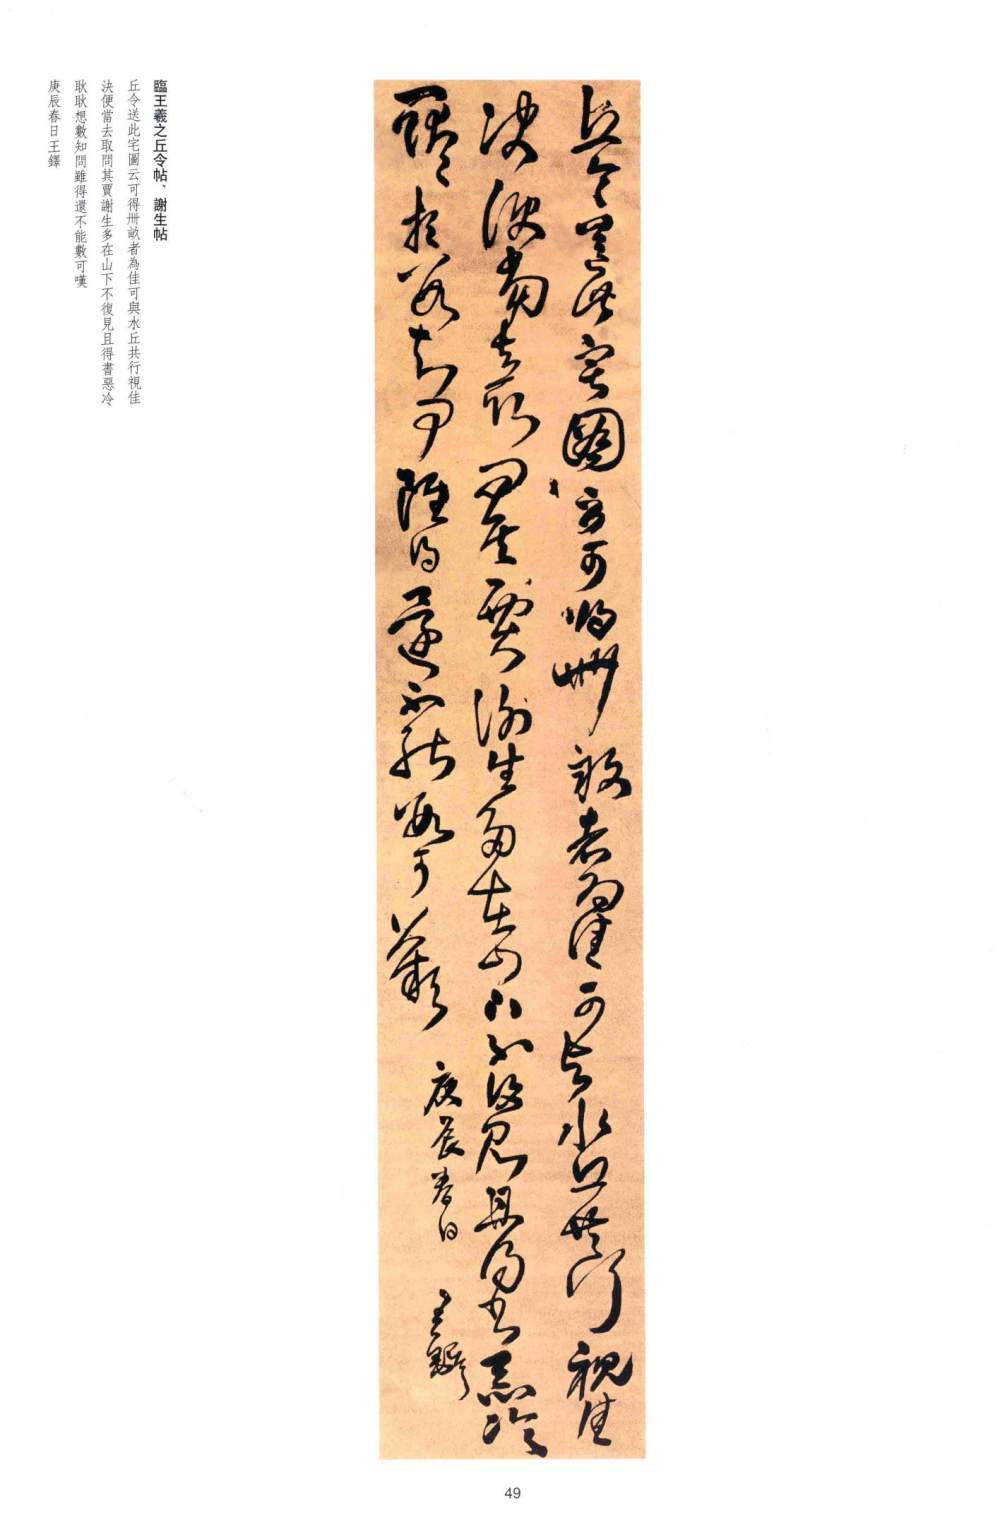 丘令送此宅圖云可得卅畝者為佳可與水丘共行視佳
決便當去取問其賈謝生多在山下不復見且得書惡冷
耿耿想數知問雖得還不能數可嘆
庚辰春日王鐸
臨王羲之丘令帖、謝生帖
丘令送此宅圖云可得卅畝者為佳可與水丘共行視佳
決便當去取問其賈謝生多在山下不復見且得書惡冷
耿耿想數知問雖得還不能數可嘆
庚辰春日王鐸
49